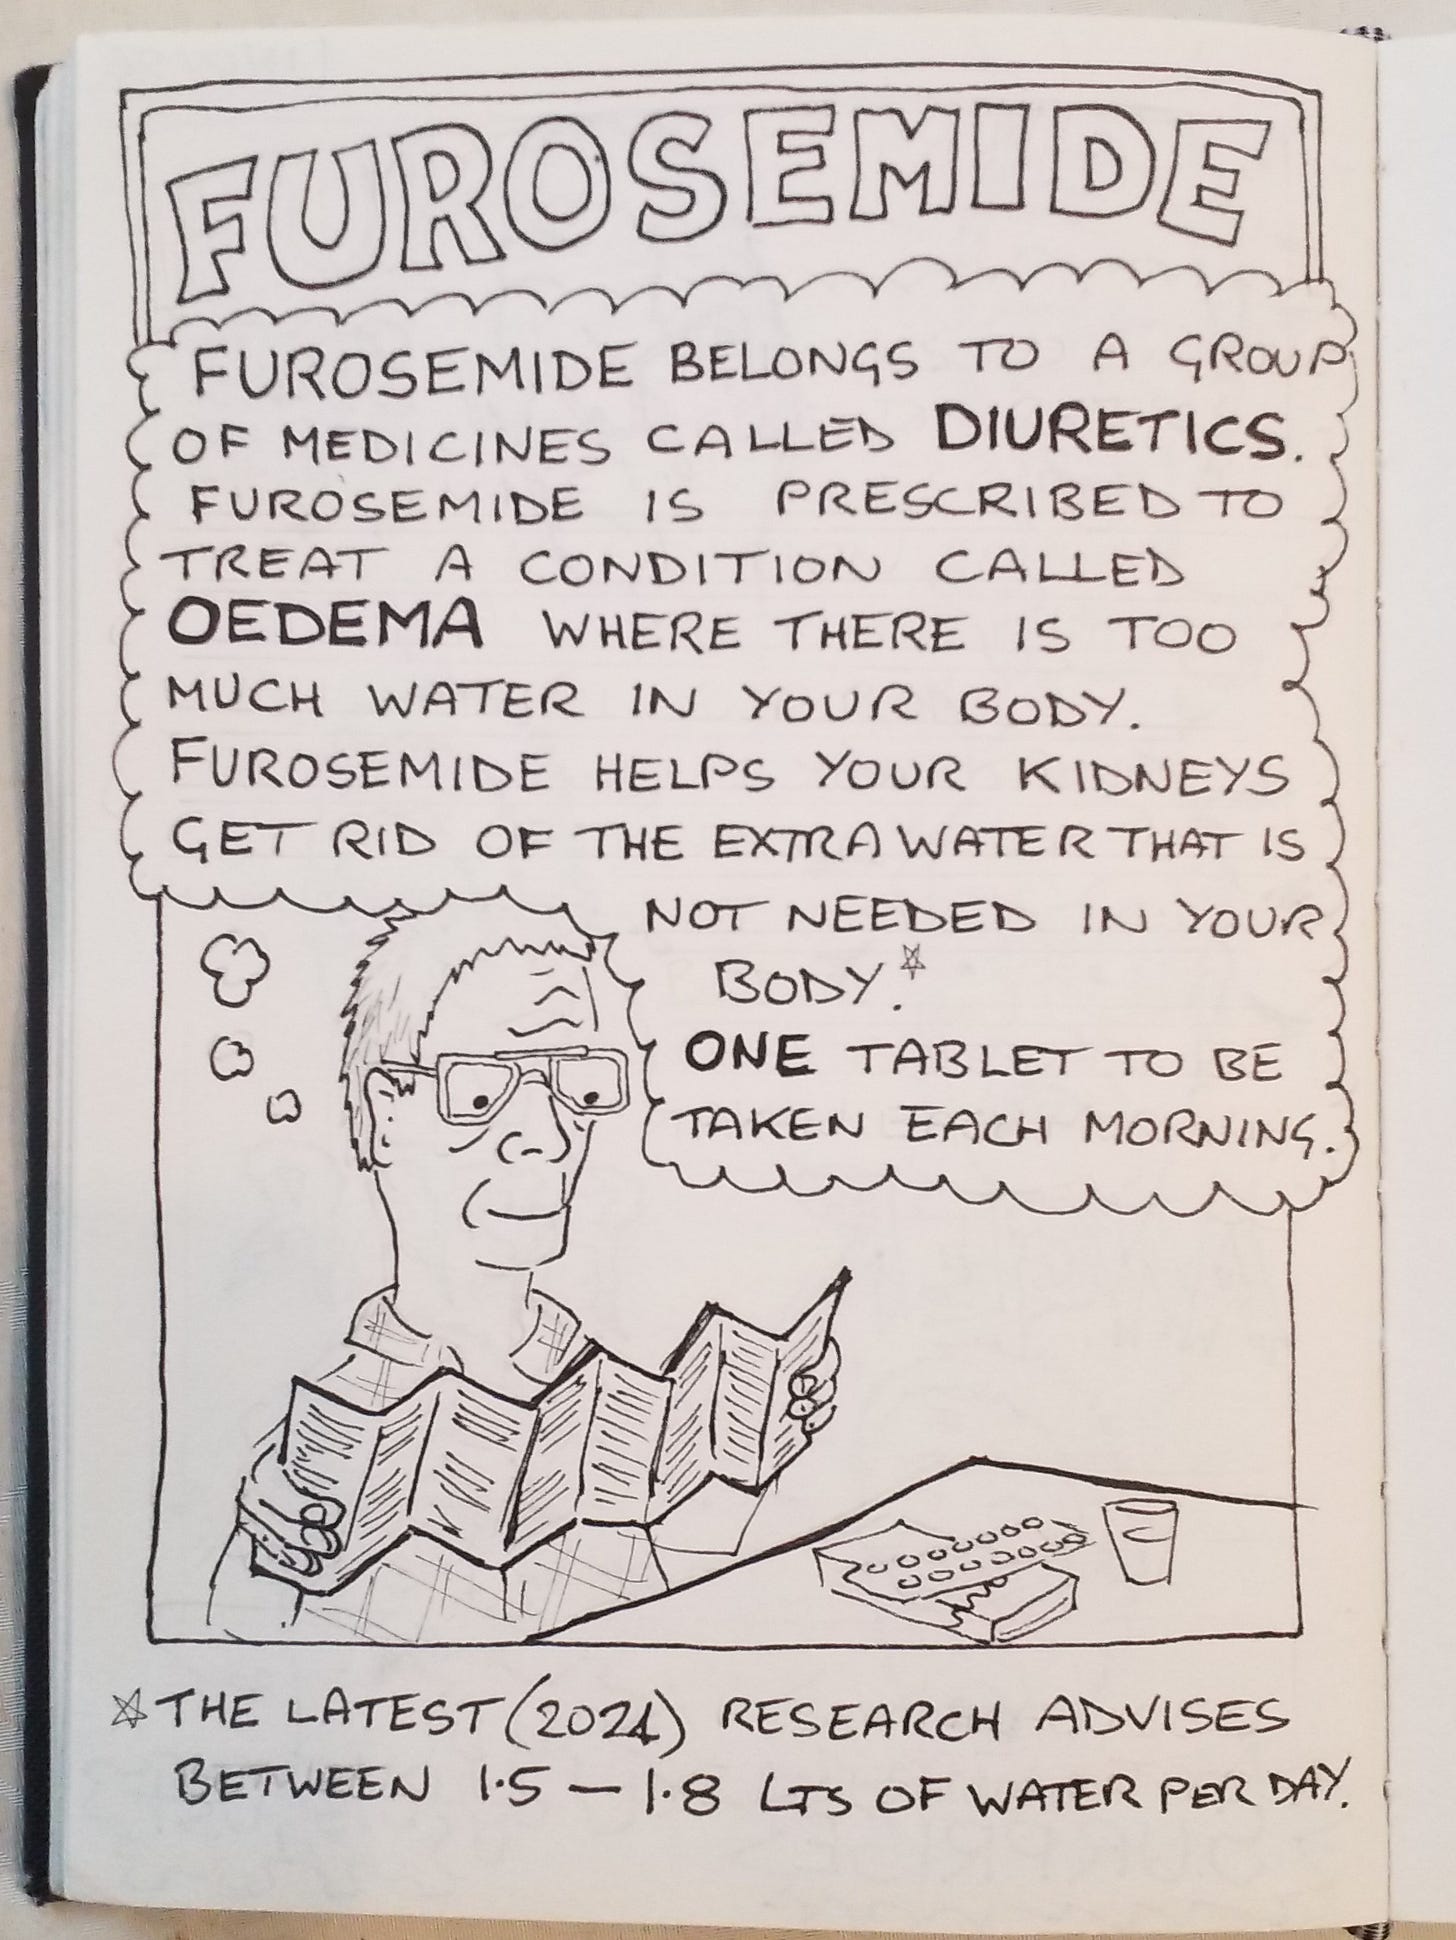 FUROSEMIDE
FUROSEMIDE BELONGS TO A GROUP
OF MEDICINES CALLED DIURETICS.
FUROSEMIDE IS PRESCRIBED TO
TREAT A CONDITION CALLED
OEDEMA WHERE THERE IS TOO
MUCH WATER IN YOUR BODY.
FUROSEMIDE HELPS YOUR KIDNEYS
GET RID OF THE EXTRA WATER THAT IS
NOT NEEDED IN YOUR
BODY.☆
ONE TABLET TO BE
TAKEN EACH MORNING.
☆ THE LATEST (2021) RESEARCH ADVISES
BETWEEN 1·5 – 1·8 LTS OF WATER PER DAY.